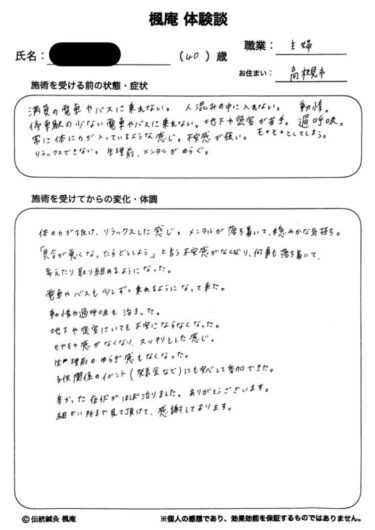 楓庵 体験談
氏名：
（40）歳
職業： 主婦
お住まい： 高槻市
施術を受ける前の状態・症状
満員の電車やバスに乗れない。 人混みの中に入れない。 動悸。
停車駅の少ない電車やバスに乗れない。地下や密室が苦手。過呼吸。
常に体に力が入っているような感じ。不安感が強い。モヤモヤとしてしまう。
リラックスできない。生理前、メンタルがゆらぐ。
施術を受けてからの変化・体調
体の力が抜け、リラックスした感じ。メンタルが落ち着いて、穏やかな気持ち。
「具合が悪くなったらどうしよう」と言う不安感がなくなり、何事も落ち着いて、
考えたり取り組めるようになった。
電車やバスも少しずつ乗れるようになって来た。
動悸や過呼吸も治まった。
地下や密室にいても不安にならなくなった。
モヤモヤ感がなくなり、スッキリとした感じ。
生理前のゆらぎ感もなくなった。
子供関係のイベント（発表会など）にも安心して参加できた。
辛かった症状がほぼ治りました。ありがとうございます。
細かい所まで見て頂けて、感謝しております。
© 伝統鍼灸 楓庵
※個人の感想であり、効果効能を保証するものではありません。